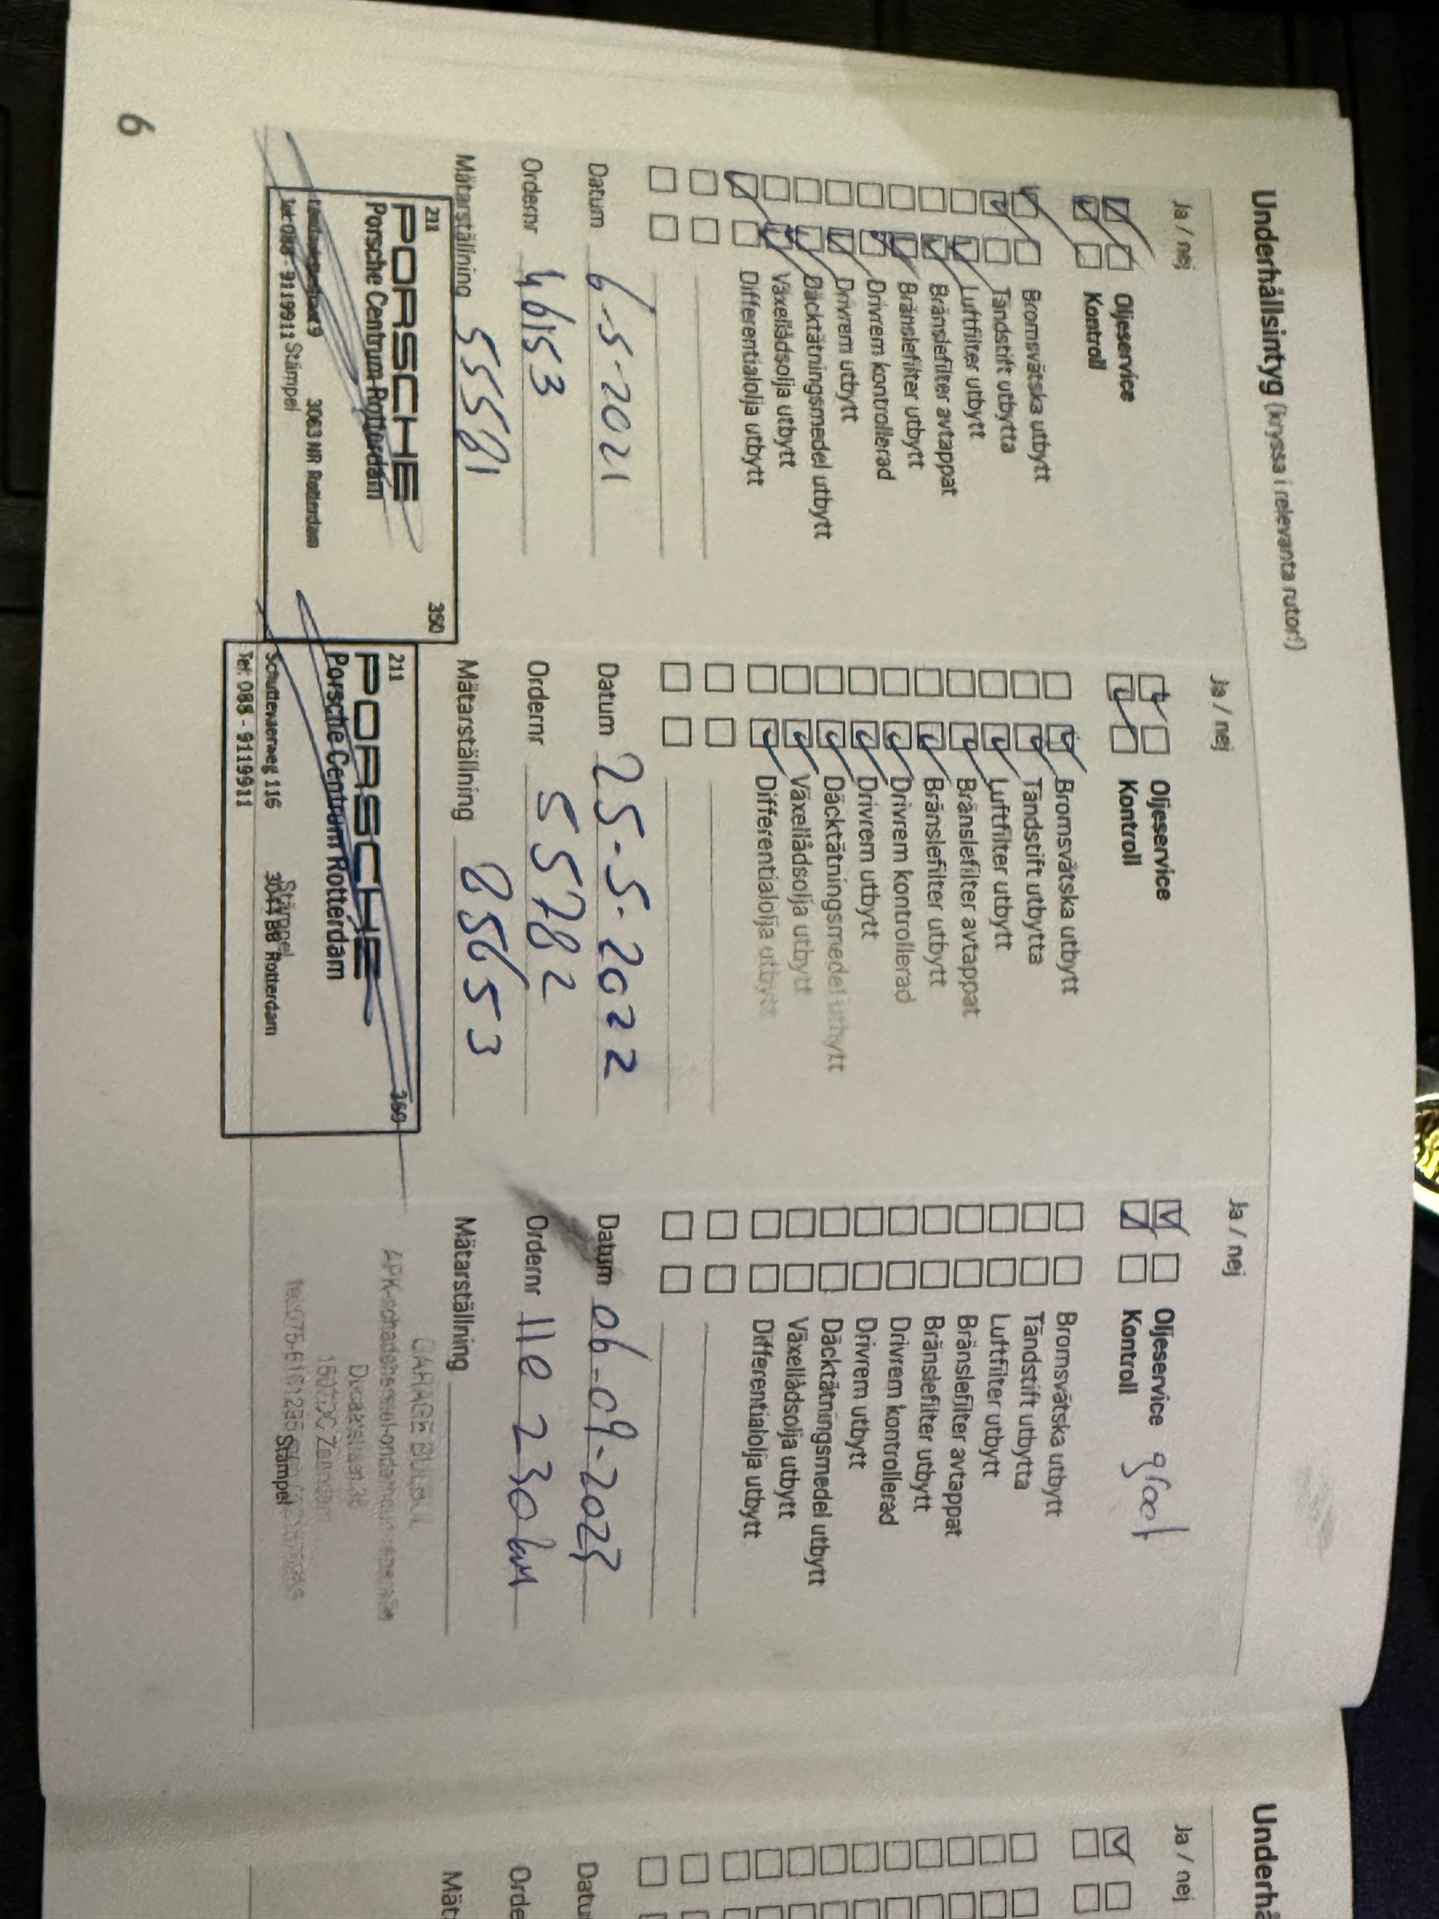 Underhållsintyg (kryssa i relevanta rutor!)
Ja / nej
Oljeservice
Kontroll
Bromsvätska utbytt
Tändstift utbytta
Luftfilter utbytt
Bränslefilter avtappat
Bränslefilter utbytt
Drivrem kontrollerad
Drivrem utbytt
Däcktätningsmedel utbytt
Växellådsolja utbytt
Differentialolja utbytt
Datum 6-5-2021
Ordernr 46153
Mätarställning 55581
211 350
PORSCHE
Porsche Centrum Rotterdam
3063 NR Rotterdam
Tel: 088 - 9119911
Stämpel
Ja / nej
Oljeservice
Kontroll
Bromsvätska utbytt
Tändstift utbytta
Luftfilter utbytt
Bränslefilter avtappat
Bränslefilter utbytt
Drivrem kontrollerad
Drivrem utbytt
Däcktätningsmedel utbytt
Växellådsolja utbytt
Differentialolja utbytt
Datum 25-5-2022
Ordernr 55782
Mätarställning 85653
211 350
PORSCHE
Porsche Centrum Rotterdam
Stämpel
Schuttevaerweg 116 3044 BB Rotterdam
Tel: 088 - 9119911
Ja / nej
Oljeservice groot
Kontroll
Bromsvätska utbytt
Tändstift utbytta
Luftfilter utbytt
Bränslefilter avtappat
Bränslefilter utbytt
Drivrem kontrollerad
Drivrem utbytt
Däcktätningsmedel utbytt
Växellådsolja utbytt
Differentialolja utbytt
Datum 06-09-2023
Ordernr 110230 km
Mätarställning
GARAGE
Zaandam
Stämpel
6
Underhå
Ja / nej
Datu
Orde
Mät